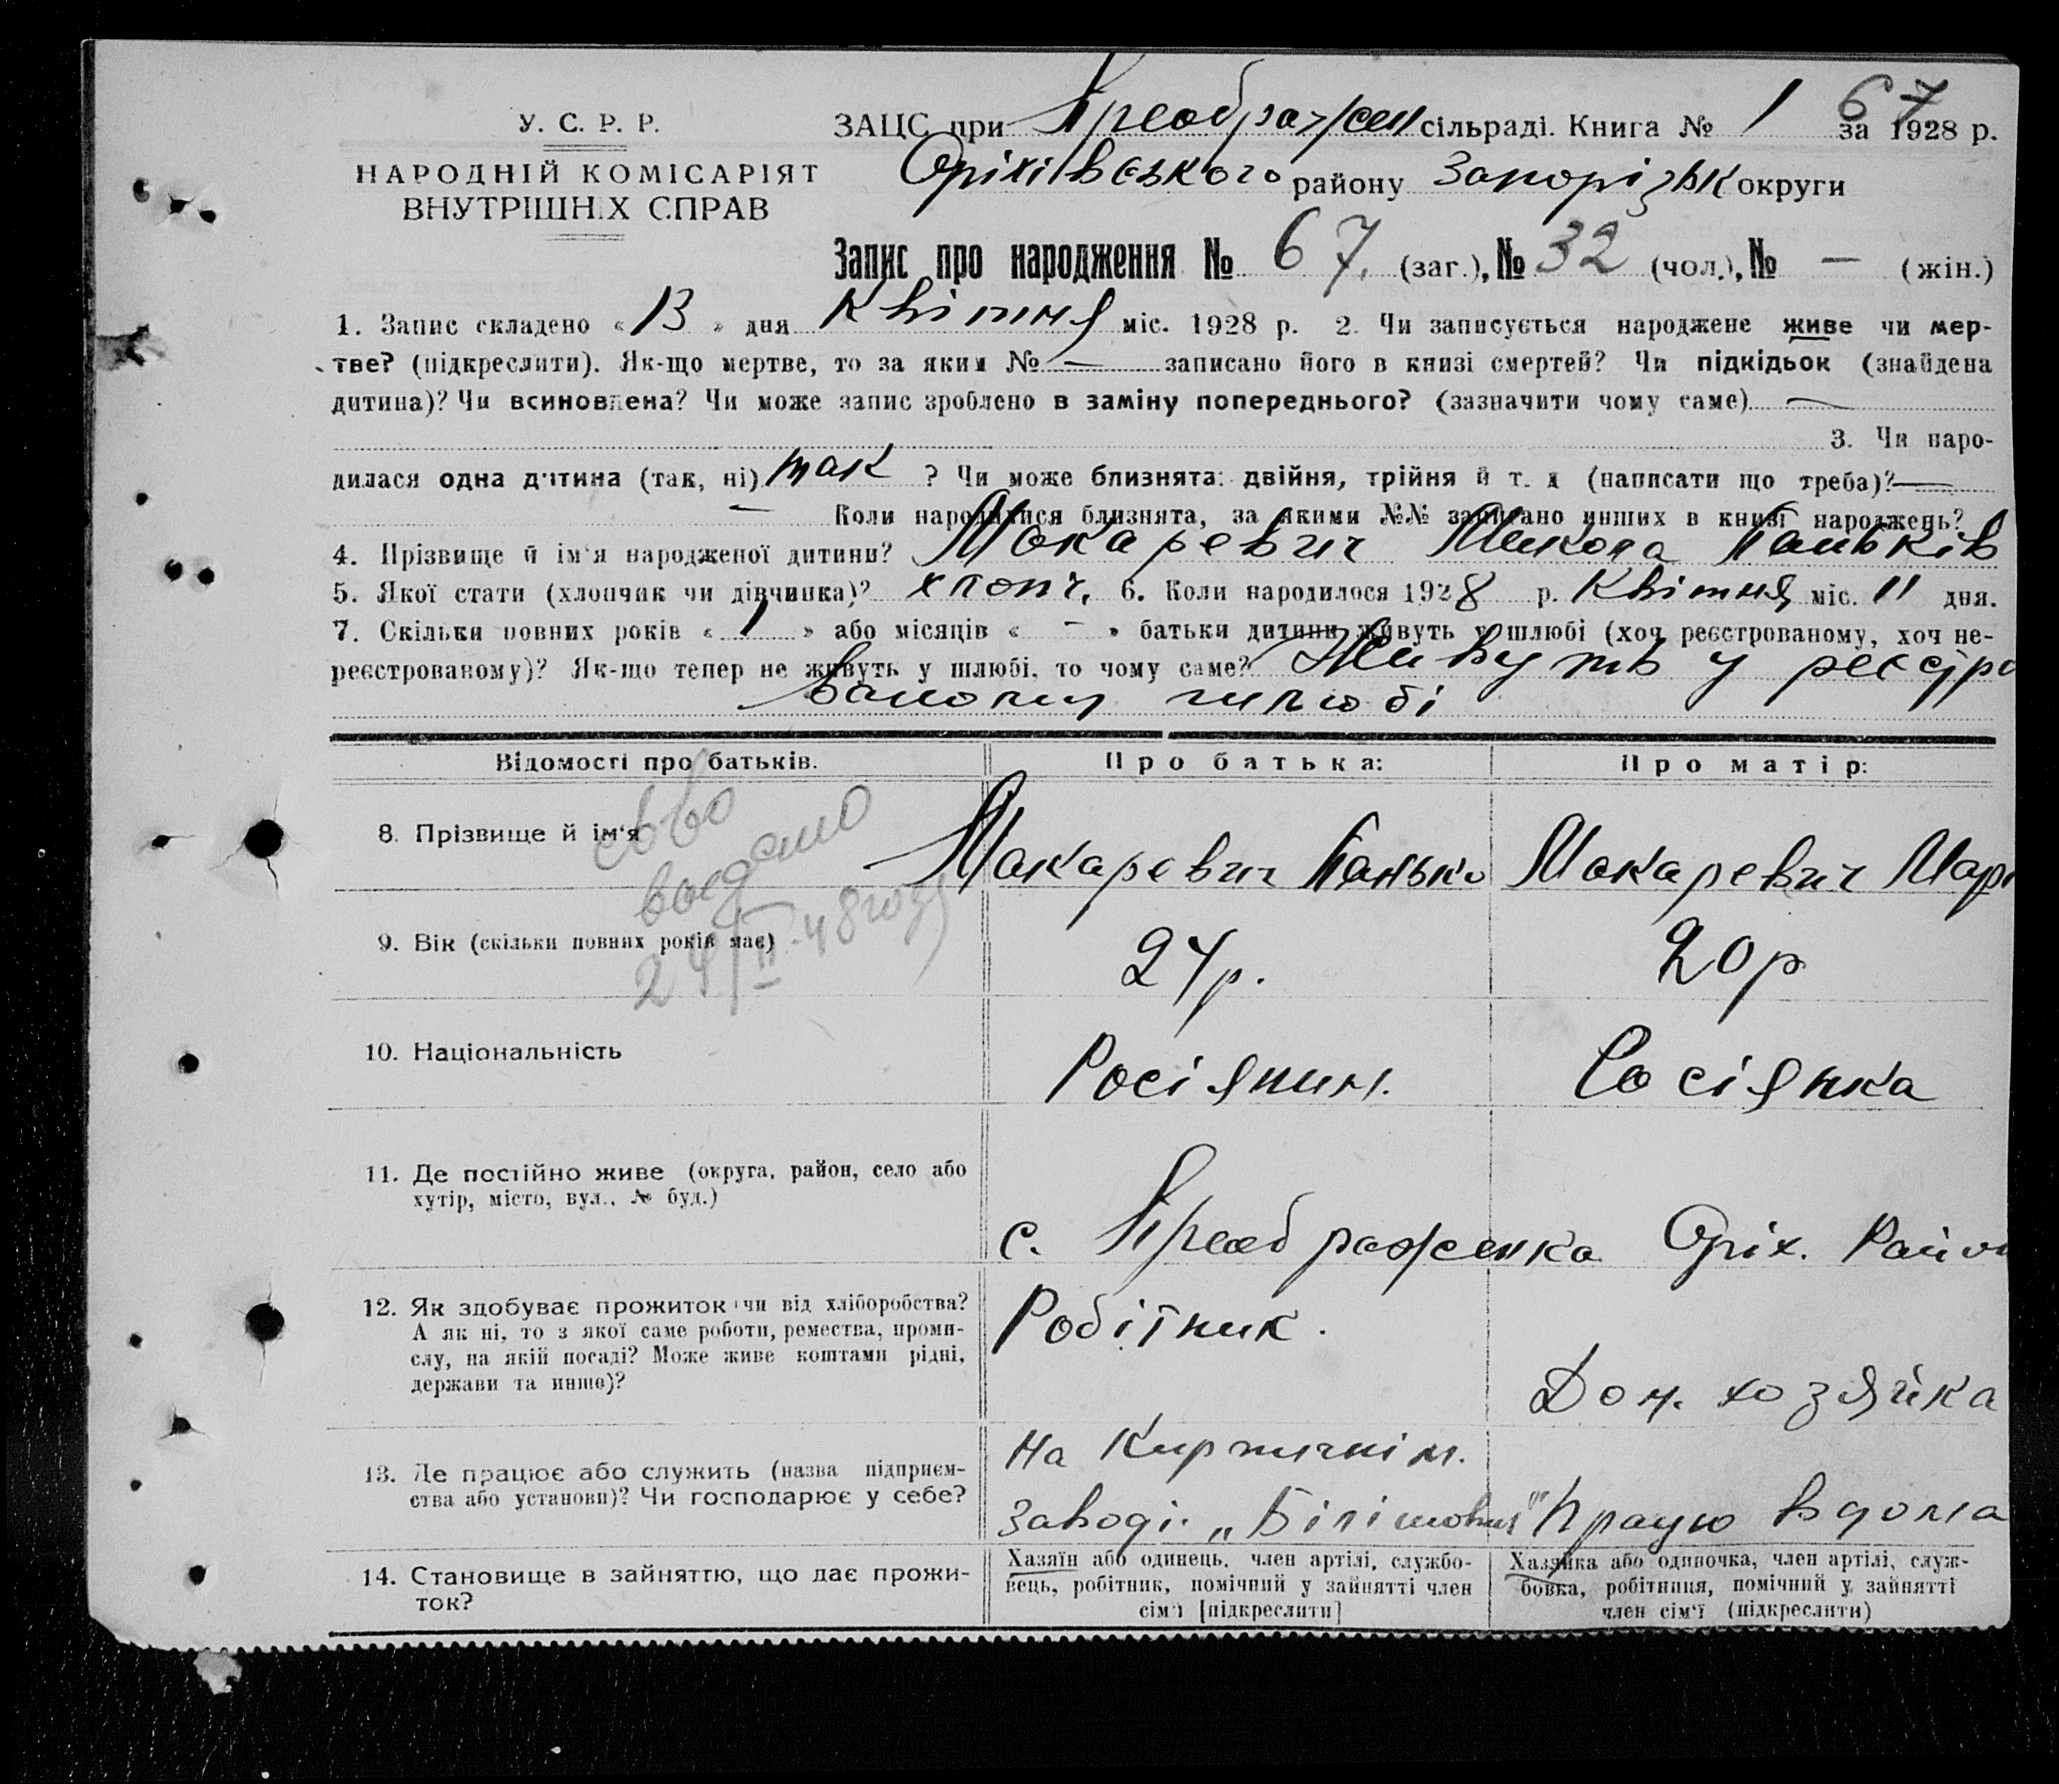 67
У. С. Р. Р.
НАРОДНІЙ КОМІСАРІЯТ
ВНУТРІШНІХ СПРАВ
ЗАЦС при Преображен сільраді. Книга № 1 за 1928 р.
Оріхівського району Запорізьк округи
Запис про народження № 67. (заг.), № 32 (чол.), № — (жін.)
1. Запис складено « 13 » дня Квітня міс. 1928 р. 2. Чи записується народжене живе чи мер-
тве? (підкреслити). Як-що мертве, то за яким № — записано його в книзі смертей? Чи підкідьок (знайдена
дитина)? Чи всиновлена? Чи може запис зроблено в заміну попереднього? (зазначити чому саме) —
3. Чи наро-
дилася одна дитина (так, ні) так ? Чи може близнята: двійня, трійня й т. д (написати що треба)? —
— Коли народилися близнята, за якими №№ записано инших в книзі народжень?
4. Прізвище й ім'я народженої дитини? Макаревич Микола Паньків
5. Якої стати (хлопчик чи дівчинка)? хлопч. 6. Коли народилося 1928 р. Квітня міс. 11 дня.
7. Скільки повних років « 1 » або місяців « - » батьки дитини живуть у шлюбі (хоч реєстрованому, хоч не-
реєстрованому)? Як-що тепер не живуть у шлюбі, то чому саме? Живуть у реєстро
ваному шлюбі
Відомості про батьків.
Про батька:
Про матір:
8. Прізвище й ім'я
Макаревич Панько
Макаревич Мар
9. Вік (скільки повних років має)
24р.
20р
10. Національність
Росіянин.
Росіянка
11. Де постійно живе (округа, район, село або
хутір, місто, вул., № буд.)
с. Преображенка Оріх. Район
12. Як здобуває прожиток: чи від хліборобства?
А як ні, то з якої саме роботи, ремества, проми-
слу, на якій посаді? Може живе коштами рідні,
держави та инше)?
Робітник.
Дом. хозяйка
13. Де працює або служить (назва підприєм-
ства або установи)? Чи господарює у себе?
на Кирпичнім.
заводі.
Працю вдома
14. Становище в зайняттю, що дає прожи-
ток?
Хазяїн або одинець, член артілі, службо-
вець, робітник, помічний у зайнятті член
сім'ї [підкреслити]
Хазяйка або одиночка, член артілі, служ-
бовка, робітниця, помічний у зайнятті
член сім'ї (підкреслити)